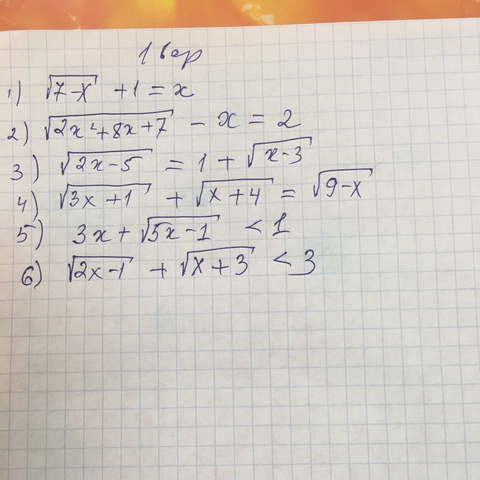 1 вар
1) √(7-x) + 1 = x
2) √(2x²+8x+7) - x = 2
3) √(2x-5) = 1 + √(x-3)
4) √(3x+1) + √(x+4) = √(9-x)
5) 3x + √(5x-1) < 1
6) √(2x-1) + √(x+3) < 3